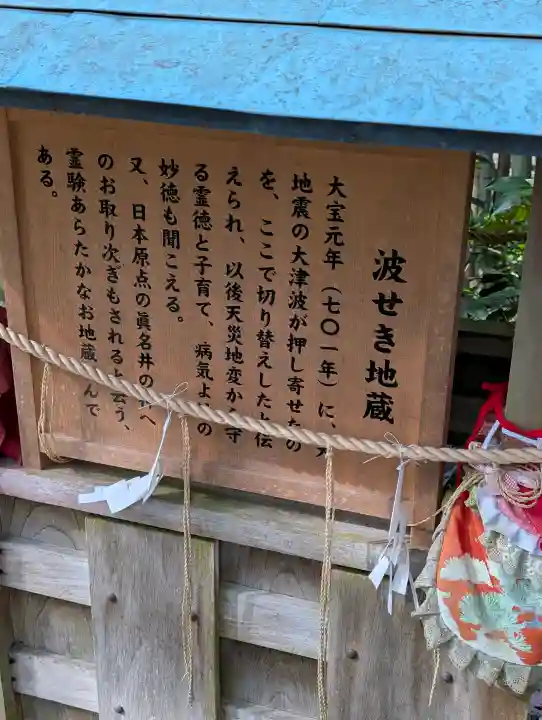 波せき地蔵
大宝元年（七〇一年）に、大
地震の大津波が押し寄せたの
を、ここで切り替えしたと伝
えられ、以後天災地変から守
る霊徳と子育て、病気よけの
妙徳も聞こえる。
又、日本原点の眞名井の神へ
のお取り次ぎもされると云う、
霊験あらたかなお地蔵さんで
ある。